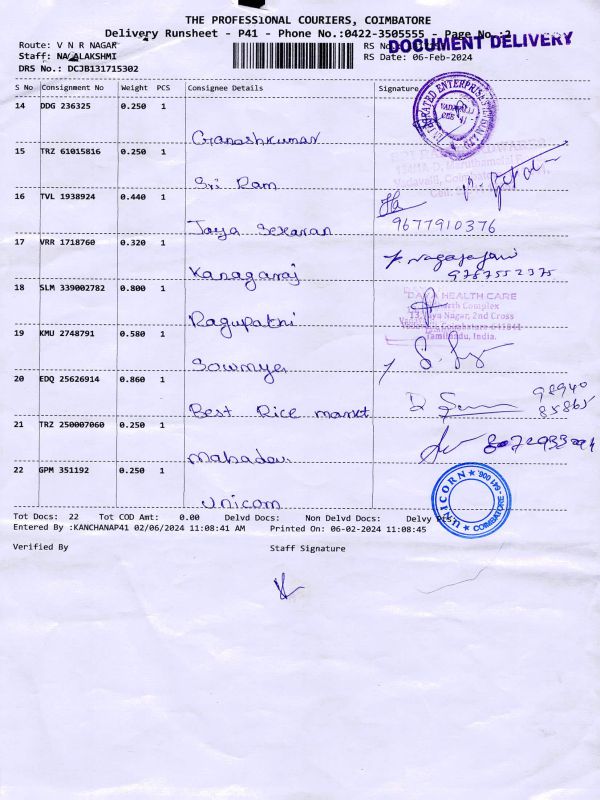 THE PROFESSIONAL COURIERS, COIMBATORE
Delivery Runsheet - P41 - Phone No.:0422-3505555 - Page No.:2
DOCUMENT DELIVERY
Route: V N R NAGAR
RS No
Staff: NAGALAKSHMI
RS Date: 06-Feb-2024
DRS No.: DCJB131715302
S No Consignment No Weight PCS Consignee Details Signature
14 DDG 236325 0.250 1
VADAVALLI
Ganeshkumar
15 TRZ 61015816 0.250 1
Sri Ram
16 TVL 1938924 0.440 1
Jaya Sekaran 9677910376
17 VRR 1718760 0.320 1
Kanagaraj
18 SLM 339002782 0.800 1
HEALTH CARE
Complex
Nagar, 2nd Cross
Tamilnadu, India.
Ragupathi
19 KMU 2748791 0.580 1
Sowmya
20 EDQ 25626914 0.860 1
Best Rice market
98940
85865
21 TRZ 250007060 0.250 1
Mahadevi
22 GPM 351192 0.250 1
Unicorn
UNICORN COIMBATORE - 641 008.
Tot Docs: 22 Tot COD Amt: 0.00 Delvd Docs: Non Delvd Docs: Delvy
Entered By :KANCHANAP41 02/06/2024 11:08:41 AM Printed On: 06-02-2024 11:08:45
Verified By Staff Signature